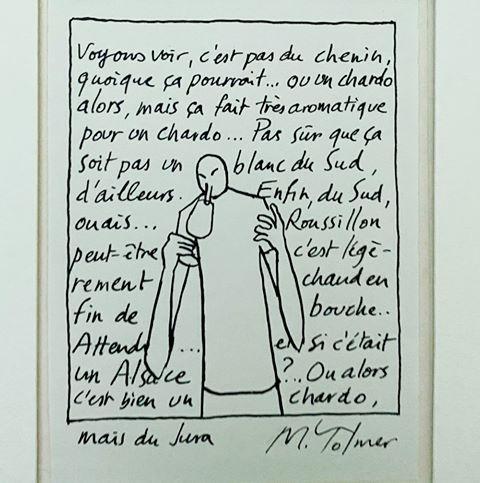 Voyons voir, c'est pas du chenin,
quoique ça pourrait... ou un chardo
alors, mais ça fait très aromatique
pour un chardo... Pas sûr que ça
soit pas un blanc du Sud,
d'ailleurs. Enfin, du Sud,
ouais... Roussillon
peut-être c'est légè-
rement chaud en
fin de bouche..
Attends ... et si c'était
un Alsace ?.. Ou alors
c'est bien un chardo,
mais du Jura M. Tolmer